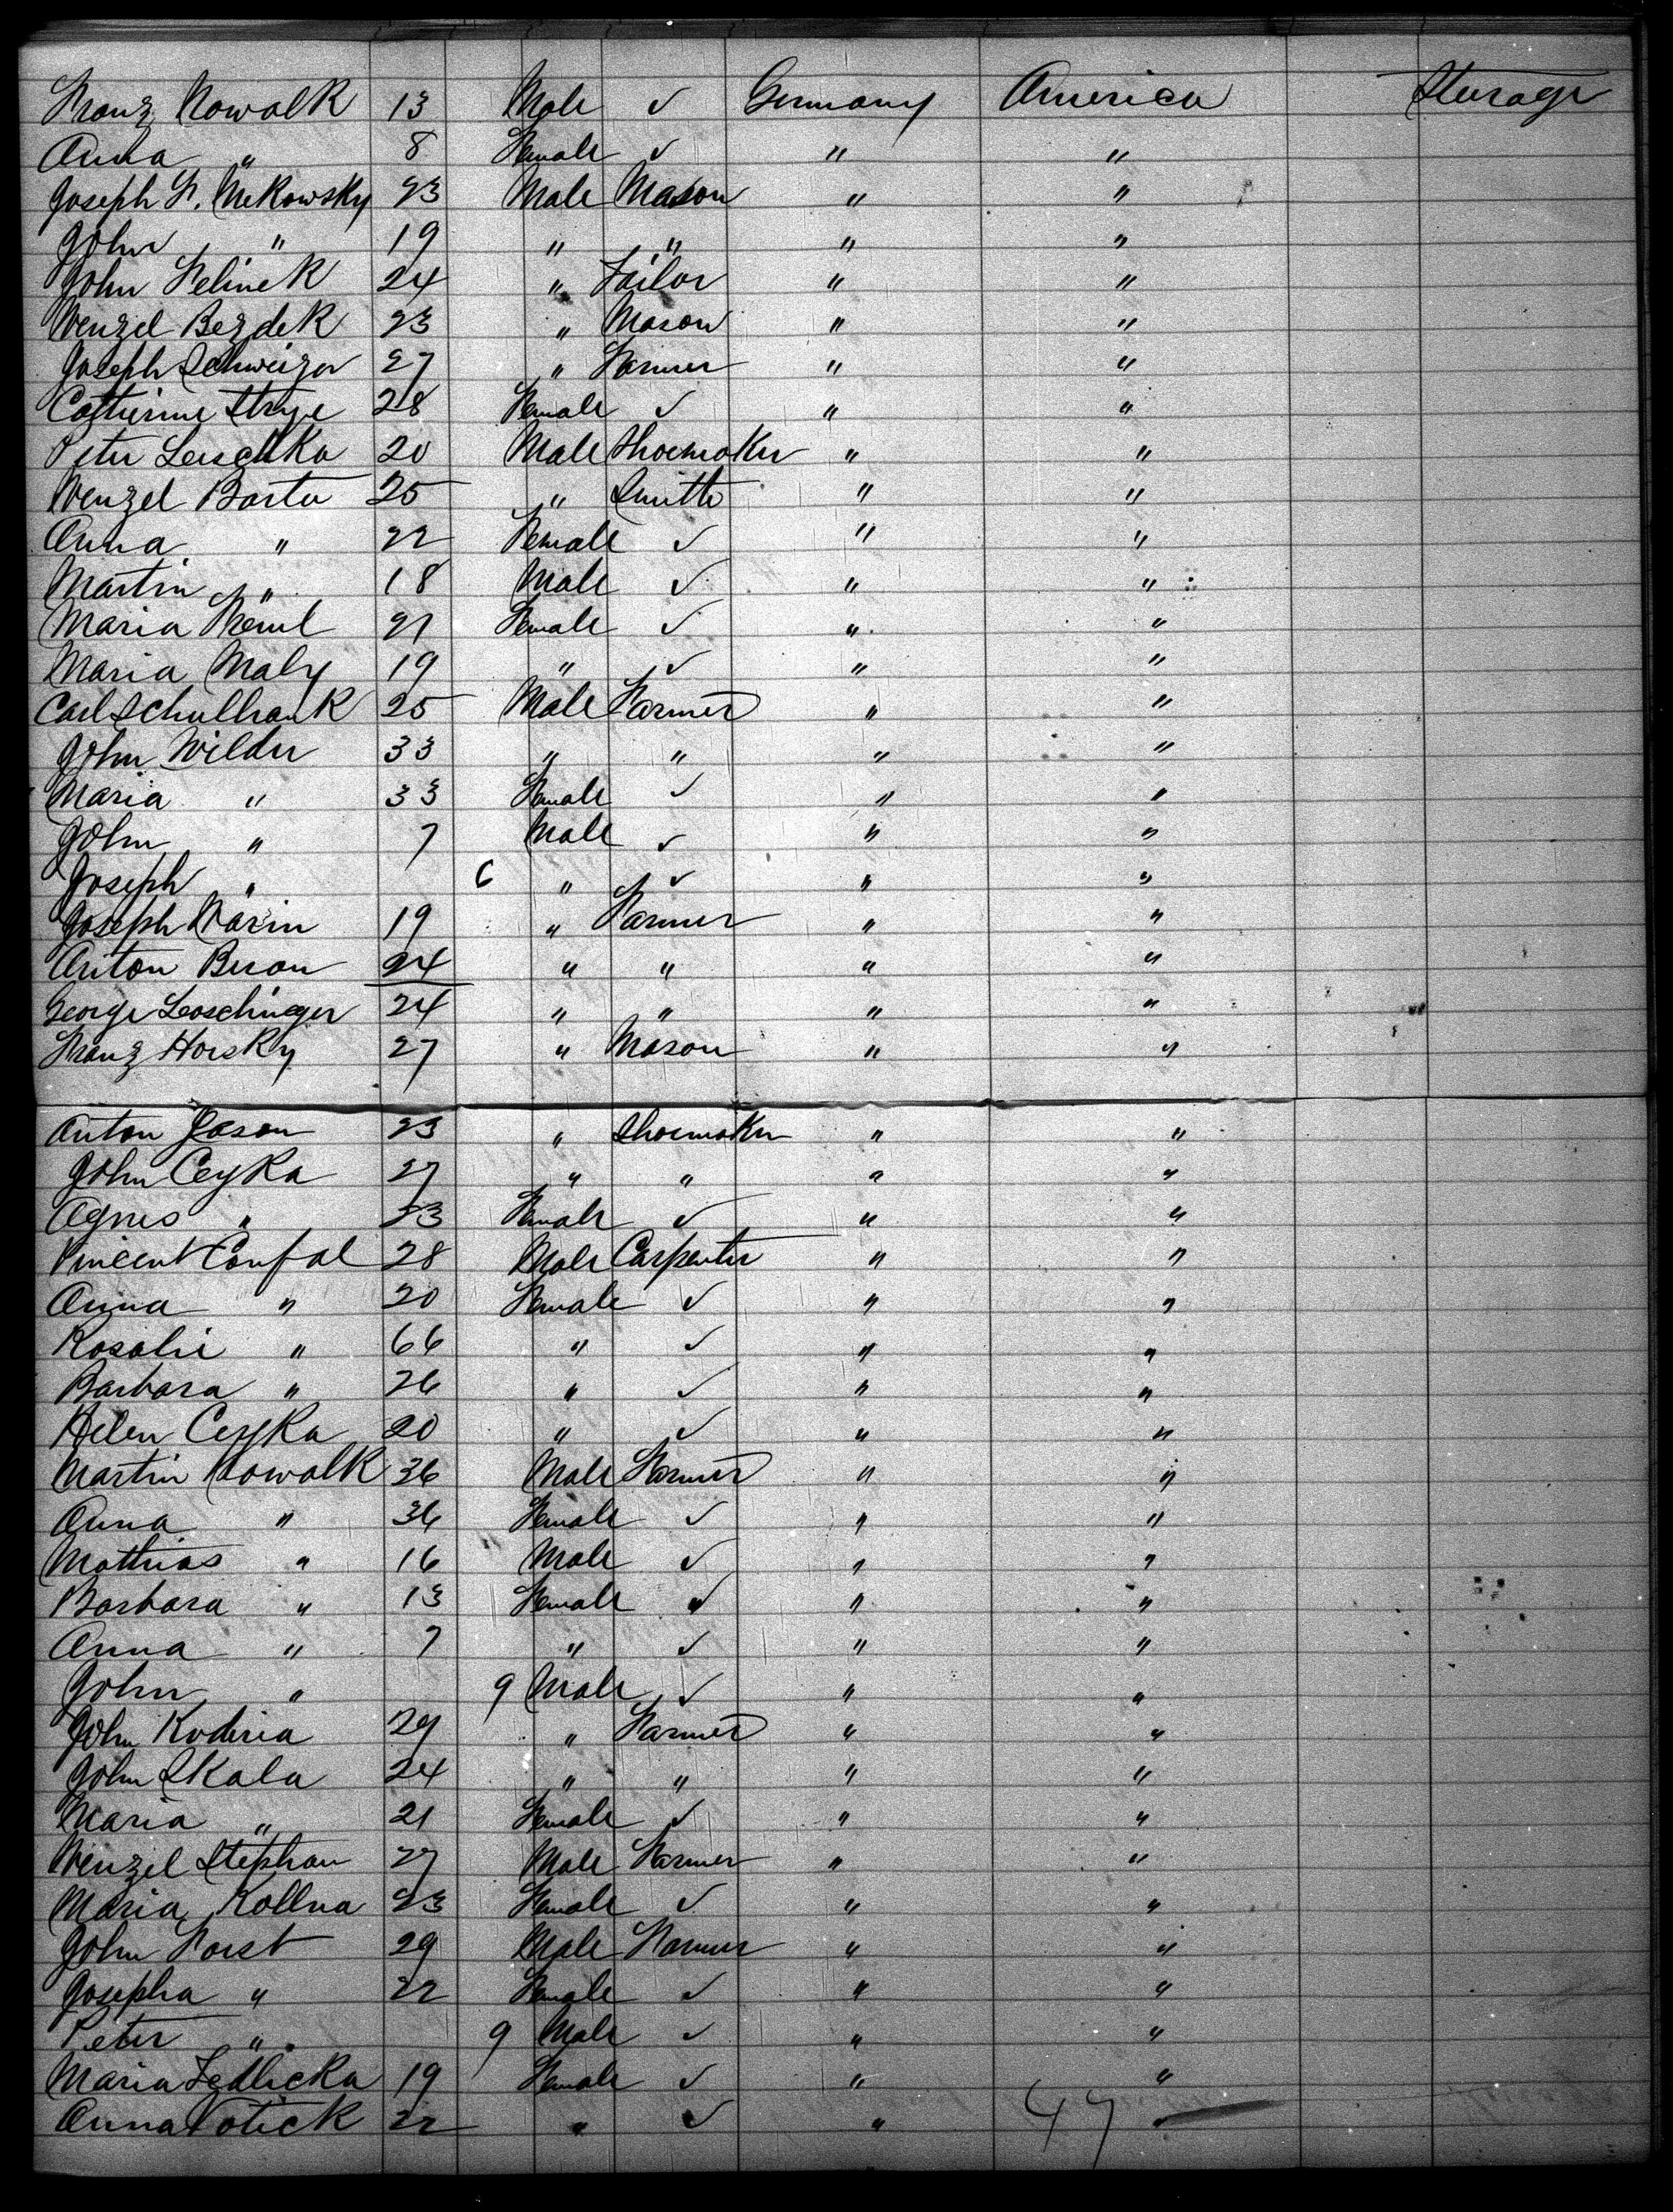 Franz Nowalk 13 Male ✓ Germany America Steerage
Anna " 8 Female ✓ " "
Joseph F. Mekowsky 23 Male Mason " "
John " 19 " " " "
John Felinek 24 " Tailor " "
Wenzel Bezdek 23 " Mason " "
Joseph Schweizer 27 " Farmer " "
Catherine 28 Female ✓ " "
Peter 20 Male Shoemaker " "
Wenzel Barta 25 " Smith " "
Anna " 22 Female ✓ " "
Martin " 18 Male ✓ " "
Maria 21 Female ✓ " "
Maria Maly 19 " ✓ " "
Carl Schulhauk 25 Male Farmer " "
John Wilder 33 " " " "
Maria " 33 Female ✓ " "
John " 7 Male ✓ " "
Joseph " 6 " ✓ " "
Joseph 19 " Farmer " "
Anton Beran 24 " " " "
George Leoschneger 24 " " " "
Franz Horsky 27 " Mason " "
Anton Jason 23 " Shoemaker " "
John Ceyka 27 " " " "
Agnes " 23 Female ✓ " "
Vincent Confal 28 Male Carpenter " "
Anna " 20 Female ✓ " "
Rosalie " 66 " ✓ " "
Barbara " 26 " ✓ " "
Helen Ceyka 20 " ✓ " "
Martin Nowalk 36 Male Farmer " "
Anna " 36 Female ✓ " "
Mathias " 16 Male ✓ " "
Barbara " 13 Female ✓ " "
Anna " 7 " ✓ " "
John " 9 Male ✓ " "
John Koderia 29 " Farmer " "
John Skala 24 " " " "
Maria " 21 Female ✓ " "
Wenzel Stephan 27 Male Farmer " "
Maria Kollna 23 Female ✓ " "
John Forst 29 Male Farmer " "
Josepha " 22 Female ✓ " "
Peter " 9 Male ✓ " "
Maria Jedlicka 19 Female ✓ " "
Anna Votick 22 " ✓ " "
47